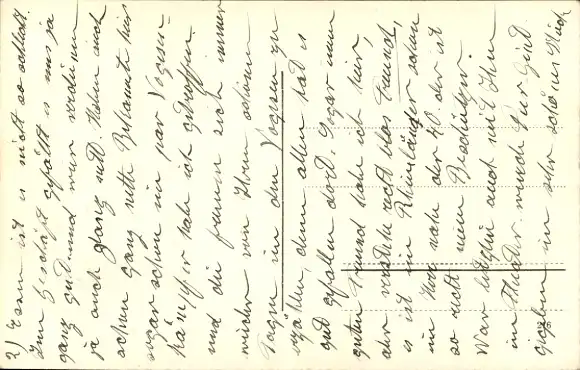 2) Essen ist es nicht so schlecht.
Im Geschäft gefällt es mir ja
ganz gut und man verdient
ja auch ganz nett. Habe auch
schon ganz nette Bekannte hier
sogar schon ein par Vogesen-
kämpfer habe ich getroffen.
und die freuen sich immer
wieder von Ihren schönen
Tagen in den Vogesen zu
erzählen, denn allen hat es
gut gefallen dort. Sogar einen
guten Freund habe ich hier,
aber verstehe recht blos Freund,
es ist ein Rheinländer schon
ein Herr nahe der 40 der ist
so recht mein Beschützer.
War letzthin auch mit Ihm
im Theater. wurde Pur Gint
gegeben ein sehr schönes Stück